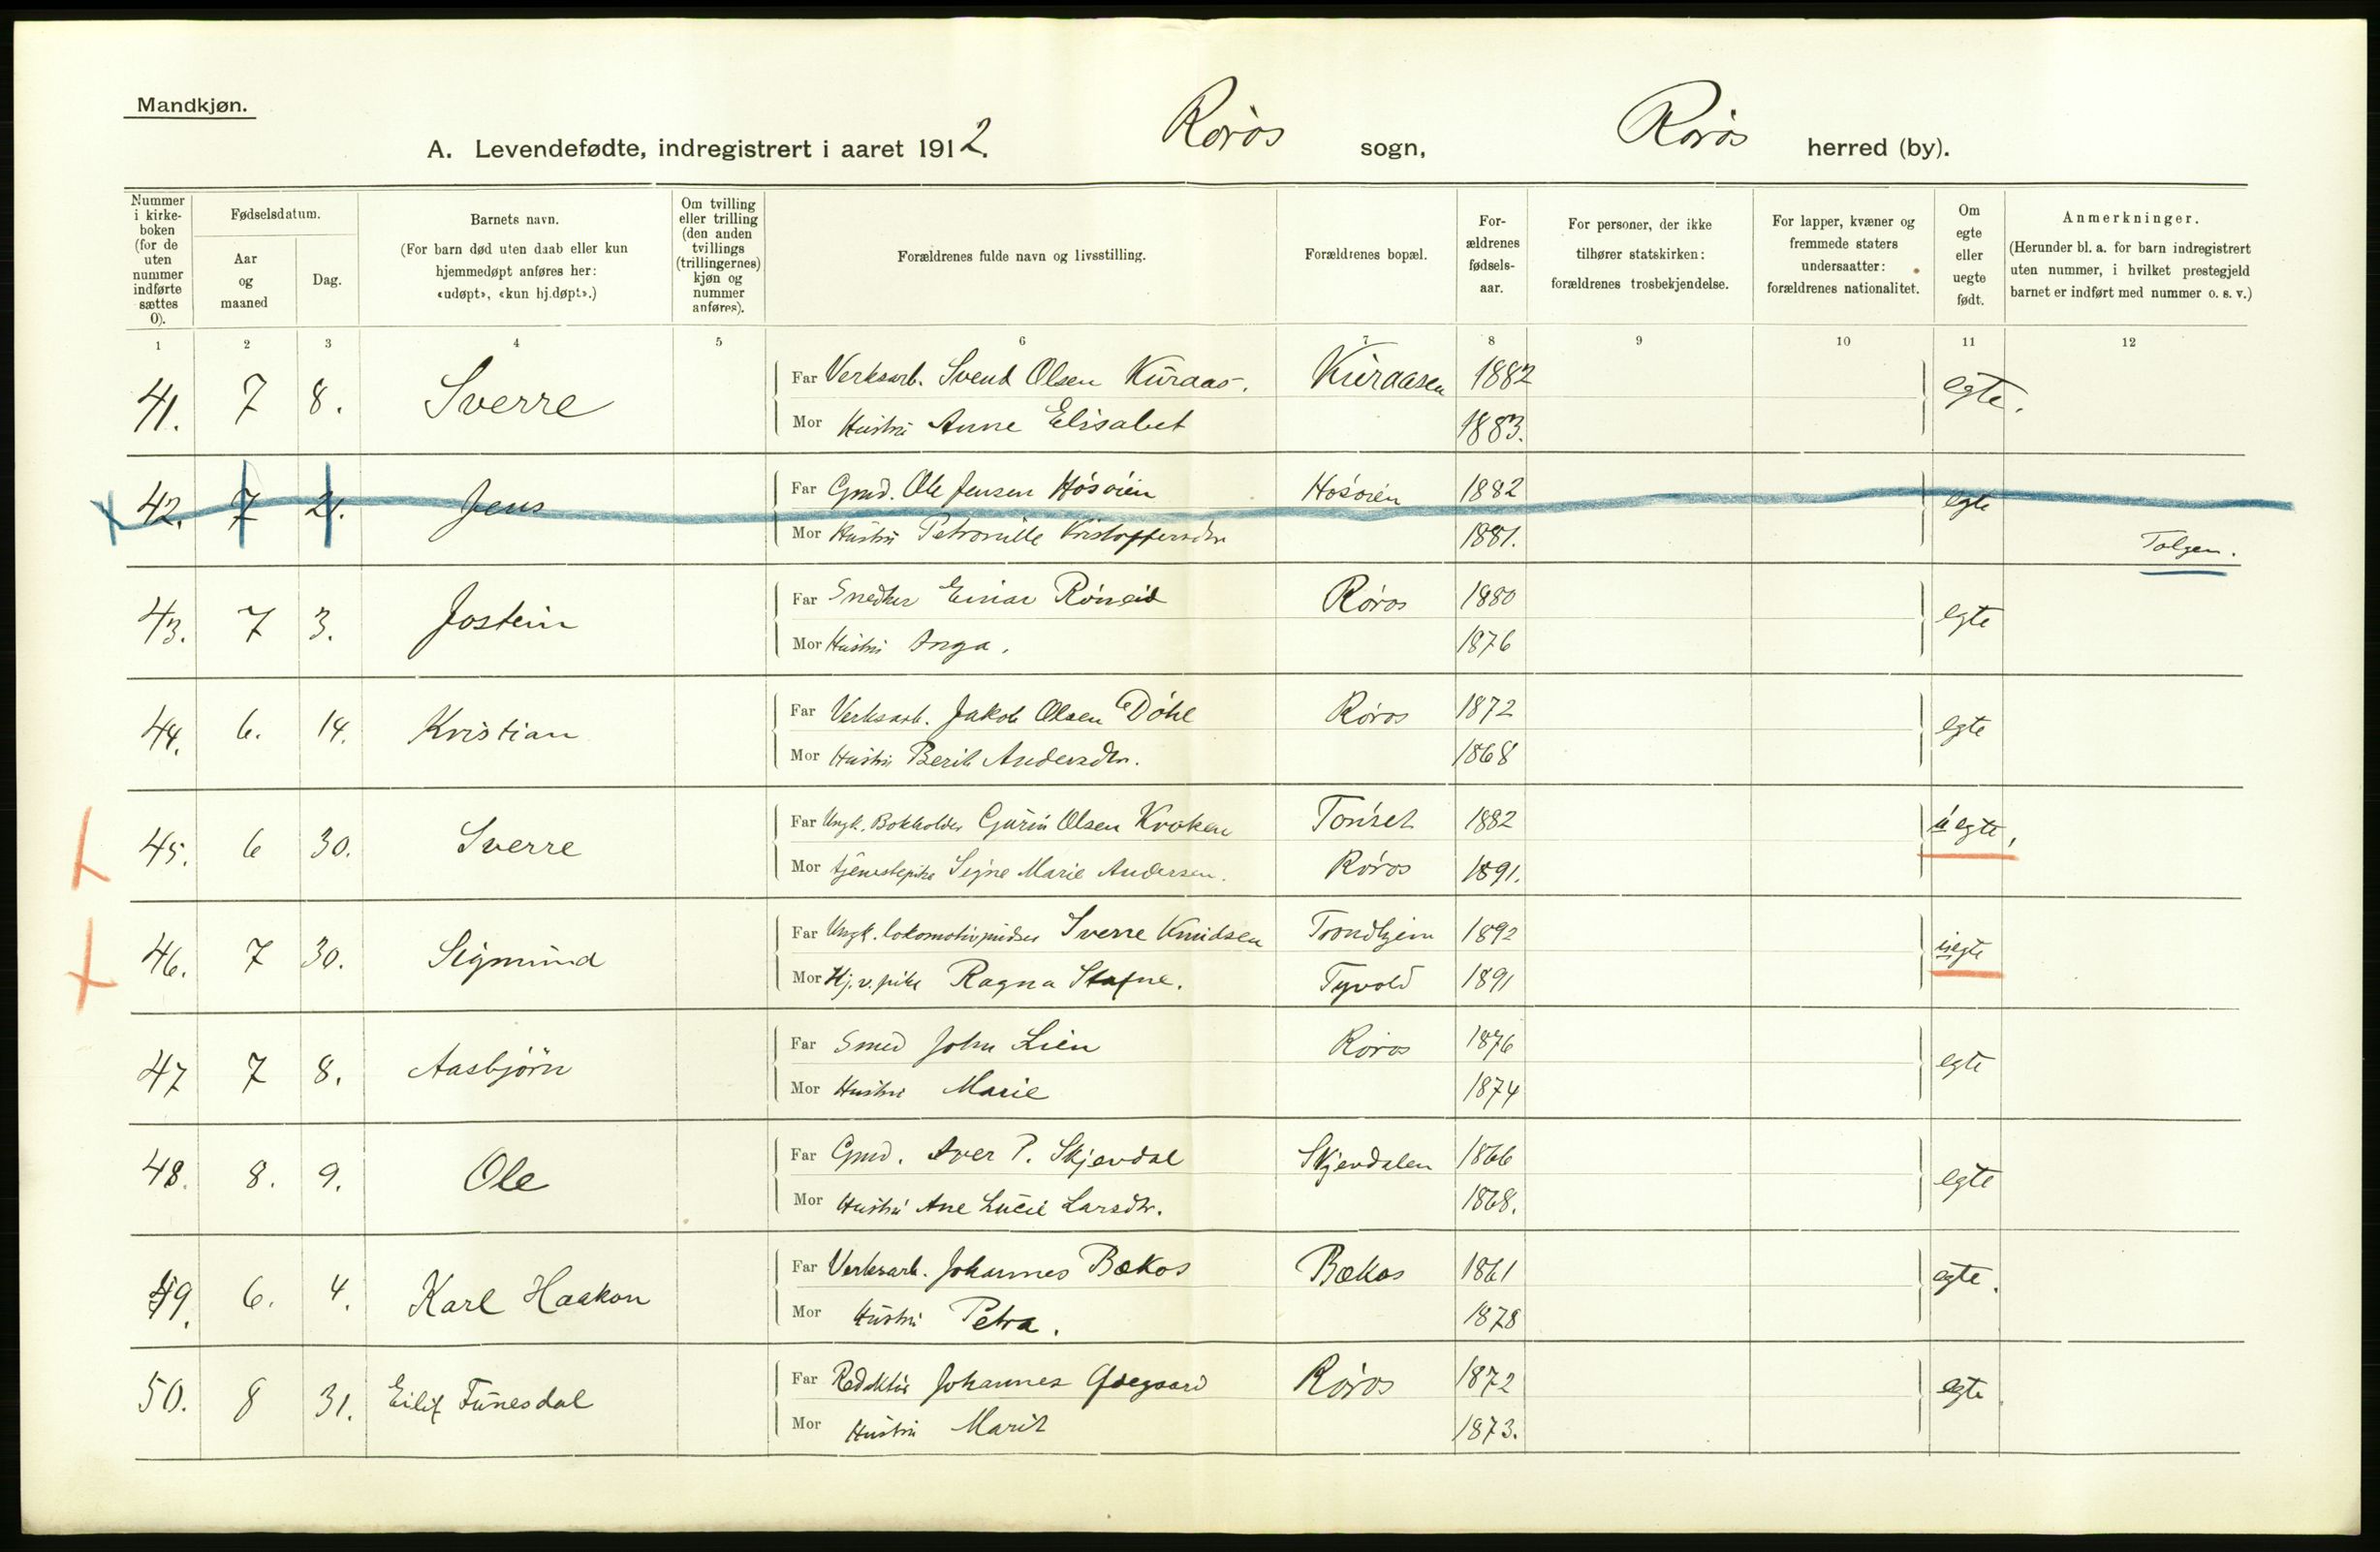 Mandkjøn.
A. Levendefødte, indregistrert i aaret 1912. Røros sogn, Røros herred (by).
Nummer i kirkeboken (for de uten nummer indførte sættes 0).
Fødselsdatum.
Aar og maaned
Dag.
Barnets navn.
(For barn død uten daab eller kun hjemmedøpt anføres her: «udøpt», «kun hj.døpt».)
Om tvilling eller trilling (den anden tvillings (trillingernes) kjøn og nummer anføres).
Forældrenes fulde navn og livsstilling.
Forældrenes bopæl.
For-ældrenes fødsels-aar.
For personer, der ikke tilhører statskirken: forældrenes trosbekjendelse.
For lapper, kvæner og fremmede staters undersaatter: forældrenes nationalitet.
Om egte eller uegte født.
Anmerkninger.
(Herunder bl. a. for barn indregistrert uten nummer, i hvilket prestegjeld barnet er indført med nummer o. s. v.)
1 2 3 4 5 6 7 8 9 10 11 12
41. 7 8. Sverre Far Verksarb. Svend Olsen Kuraas. Kuraasen 1882 egte.
Mor Hustru Anne Elisabet 1883.
42. 7 21. Jens Far Gmd. Ole Jensen Hosøien Hosøien 1882 egte
Mor Hustru Petronille Kristoffersdtr 1881. Tolgen.
43. 7 3. Jostein Far Snedker Einar Røneid Røros 1880 egte
Mor Hustru Inga. 1876
44. 6. 14. Kristian Far Verksarb. Jakob Olsen Døhl Røros 1872 egte
Mor Hustru Berit Andersdtr. 1868
45. 6 30. Sverre Far Ungk. Bokholder Guren Olsen Kroken Tønset 1882 uegte,
Mor tjenestepike Signe Marie Andersen. Røros 1891.
46. 7 30. Sigmund Far Ungk. lokomotivpudser Sverre Knudsen Trondhjem 1892 uegte
Mor Hj.v. pike Ragna Stafne. Tyvold 1891
47 7 8. Aasbjørn Far Smed John Lien Røros 1876 egte
Mor Hustru Marie 1874
48. 8. 9. Ole Far Gmd. Iver P. Skjevdal Skjevdalen 1866 egte
Mor Hustru Ane Lucie Larsdtr. 1868.
49. 6. 4. Karl Haakon Far Verksarb. Johannes Bækos Bækos 1861 egte.
Mor Hustru Petra. 1878
50. 8 31. Eilif Funesdal Far Redaktør Johannes Ødegaard Røros 1872 egte
Mor Hustru Marit 1873.